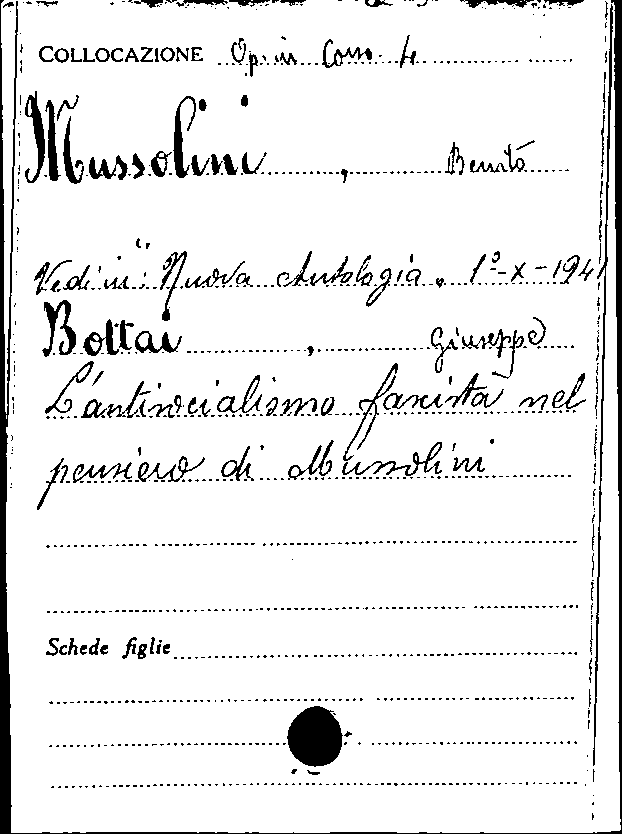 COLLOCAZIONE Op. in Cons. 4
Mussolini, Benito
Vedi in: "Nuova Antologia" 1º-X-1941
Bottai, Giuseppe
L'antisocialismo fascista nel
pensiero di Mussolini
Schede figlie